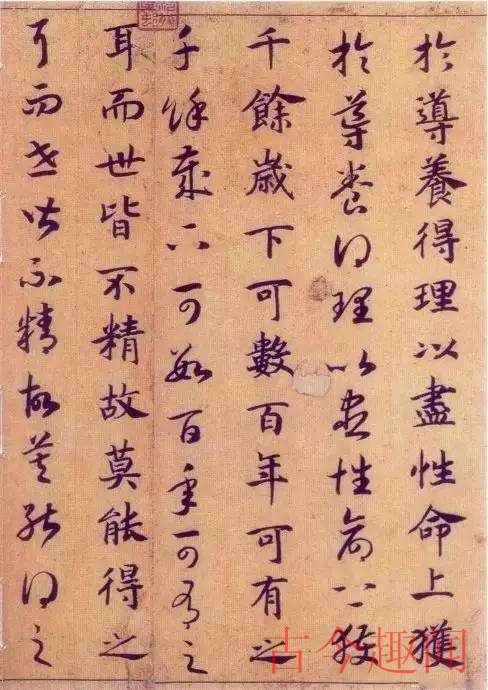 於導養得理以盡性命上獲
於導養得理以盡性命上獲
千餘歲下可數百年可有之
千餘歲下可數百年可有之
耳而世皆不精故莫能得之
耳而世皆不精故莫能得之
古今趣闻